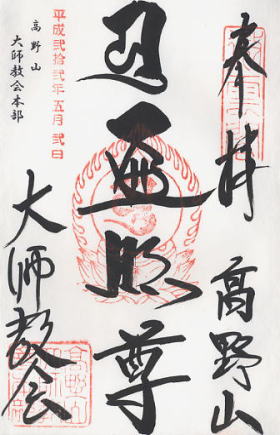 奉拝
高野山
遍照尊
平成弐拾弐年五月弐日
高野山
大師教会本部
大師教会